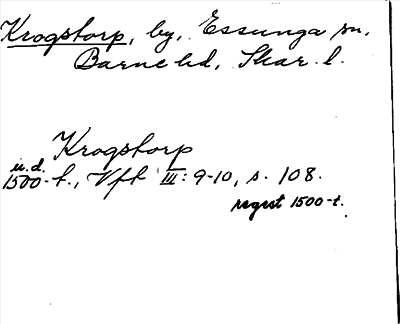 Krogstorp, by, Essunga sn,
Barne hd, Skar. l.
Krogstorp
u.d.
1500-t., Vft III: 9-10, s. 108.
regest 1500-t.